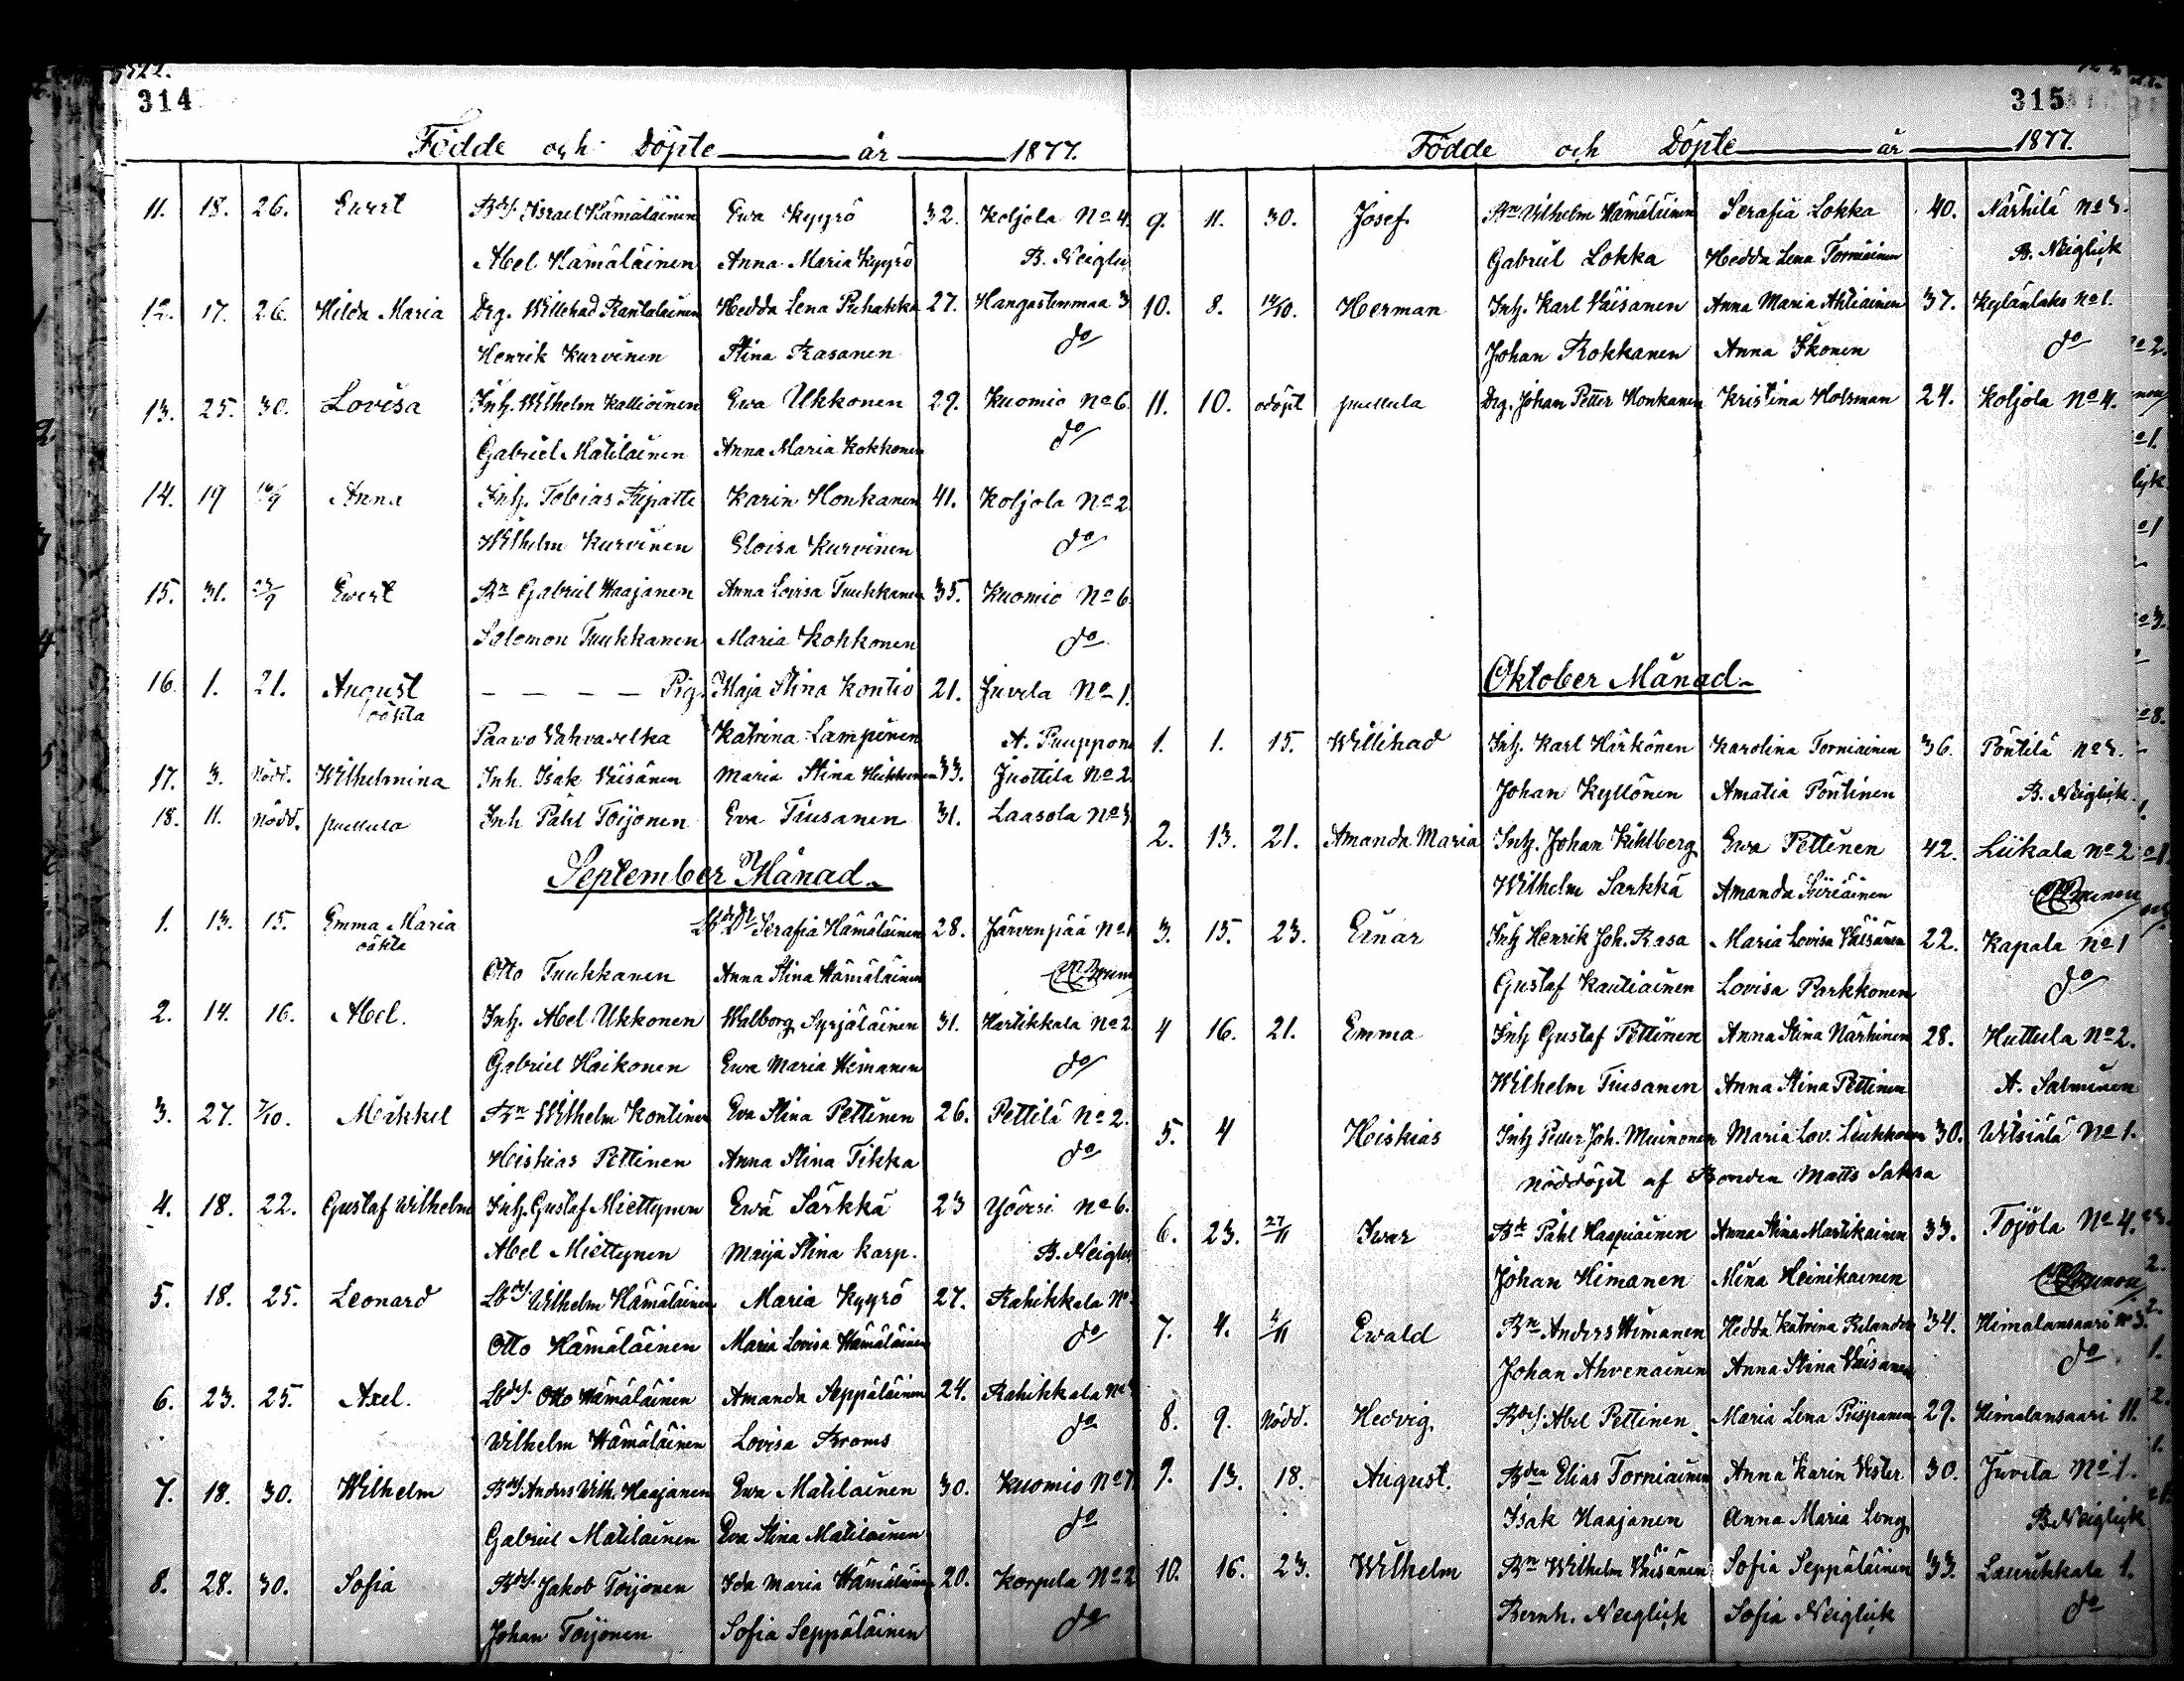 314
Födde och Döpte år 1877.
11. 18. 26. Evert Bds. Israel Hämäläinen Ewa Kyyrö 32. Koljola No 4.
Abel Hämäläinen Anna Maria Kyyrö B. Neiglic
12. 17. 26. Hilda Maria Drg. Willehad Rantalainen Hedda Lena Puhakka 27. Hangastenmaa 3
Henrik Kurvinen Stina Rasanen do
13. 25. 30. Lovisa Inh. Wilhelm Kallioinen Ewa Ukkonen 29. Kuomio No 6.
Gabriel Matilainen Anna Maria Kokkonen do
14. 19 Anna Inh. Tobias Ripatti Karin Honkanen 41. Koljola No 2.
Wilhelm Kurvinen Eloisa Kurvinen do
15. 31. 23/9 Evert Bn Gabriel Haajanen Anna Lovisa Tuukkanen 35. Kuomio No 6.
Salomon Tuukkanen Maria Kokkonen do
16. 1. 21. August – – – – Pig. Maja Stina Kontio 21. Juvela No 1.
oäkta
Paavo Vahvaselka Katrina Lampinen A. Puuppon
17. 3. Nödd. Wilhelmina Inh. Isak Väisänen Maria Stina Heikkinen 33. Juottila No 2.
18. 11. Nödd. puellula Inh Påhl Toijonen Eva Tiusanen 31. Laasola No 3
September Månad.
1. 13. 15. Emma Maria Serafia Hämäläinen 28. Järvenpää No 1
oäkta
Otto Tuukkanen Anna Stina Hämäläinen
2. 14. 16. Abel. Inh. Abel Ukkonen Walborg Syrjäläinen 31. Hartikkala No 2
Gabriel Haikonen Ewa Maria Heimanen do
3. 27. 7/10. Mikkel Bn Wilhelm Kontinen Eva Stina Pettinen 26. Pettilä No 2.
Heiskias Pettinen Anna Stina Tikka do
4. 18. 22. Gustaf Wilhelm Inh. Gustaf Miettynen Ewa Särkkä 23 Yövesi No 6.
Abel Miettynen Maija Stina Karp. B. Neiglic
5. 18. 25. Leonard Lbds. Wilhelm Hämäläinen Maria Kyyrö 27. Rahikkala No
Otto Hämäläinen Maria Lovisa Hämäläinen do
6. 23. 25. Axel. Lbds. Otto Hämäläinen Amanda Seppäläinen 24. Rahikkala No
Wilhelm Hämäläinen Lovisa Kroms do
7. 18. 30. Wilhelm Bds. Anders Wilh. Haajanen Ewa Matilainen 30. Kuomio No 7.
Gabriel Matilainen Eva Stina Matilainen do
8. 28. 30. Sofia Bds. Jakob Toijonen Ida Maria Hämäläinen 20. Korpula No 2
Johan Toijonen Sofia Seppäläinen do
315
Födde och Döpte år 1877.
9. 11. 30. Josef. Bn Vilhelm Hämäläinen Serafia Lokka 40. Närhilä No 3.
Gabriel Lokka Hedda Lena Torniainen B. Neiglick
10. 8. 14/10. Herman Inh. Karl Väisanen Anna Maria Ahtiainen 37. Kylänlaks No 1.
Johan Rokkanen Anna Ikonen do
11. 10. odöpt puellula Drg. Johan Petter Honkanen Kristina Holsman 24. Koljola No 4.
Oktober Månad.
1. 1. 15. Willihad Inh. Karl Härkönen Karolina Torniainen 36. Pöntilä No 3.
Johan Kyllönen Amalia Pöntinen B. Neiglick.
2. 13. 21. Amanda Maria Inh. Johan Kihlberg Ewa Pettinen 42. Liikala No 2
Wilhelm Sarkkä Amanda Siiriäinen
3. 15. 23. Einar Inh Henrik Joh. Rasa Maria Lovisa Väisänen 22. Kapala No 1
Gustaf Kautiainen Lovisa Parkkonen do
4 16. 21. Emma Inh Gustaf Pettinen Anna Stina Närhinen 28. Huttula No 2.
Wilhelm Tiusanen Anna Stina Pettinen A. Salminen
5. 4 Heiskias Inh Petter Joh. Muinonen Maria Lov. Liukkonen 30. Witsiälä No 1.
nöddöpt af Bonden Matts Saksa
6. 23. 27/11 Iwar Påhl Haapiainen Anna Stina Martikainen 33. Toijola No 4.
Johan Himanen Mina Heinikainen
7. 4. Ewald Bn Anders Himanen Hedda Katrina Relander 34. Himalansaari No 3.
Johan Ahvenainen Anna Stina Väisanen do
8. 9. Nödd. Hedvig Bds. Abel Pettinen Maria Lena Piispanen 29. Himalansaari 11.
9. 13. 18. August. Bden Elias Torniainen Anna Karin Vester 30. Juvela No 1.
Isak Haajanen Anna Maria Leng B. Neiglick
10. 16. 23. Wilhelm Bn Wilhelm Väisänen Sofia Seppäläinen 33. Laurikkala 1.
Bernh. Neiglick Sofia Neiglick do